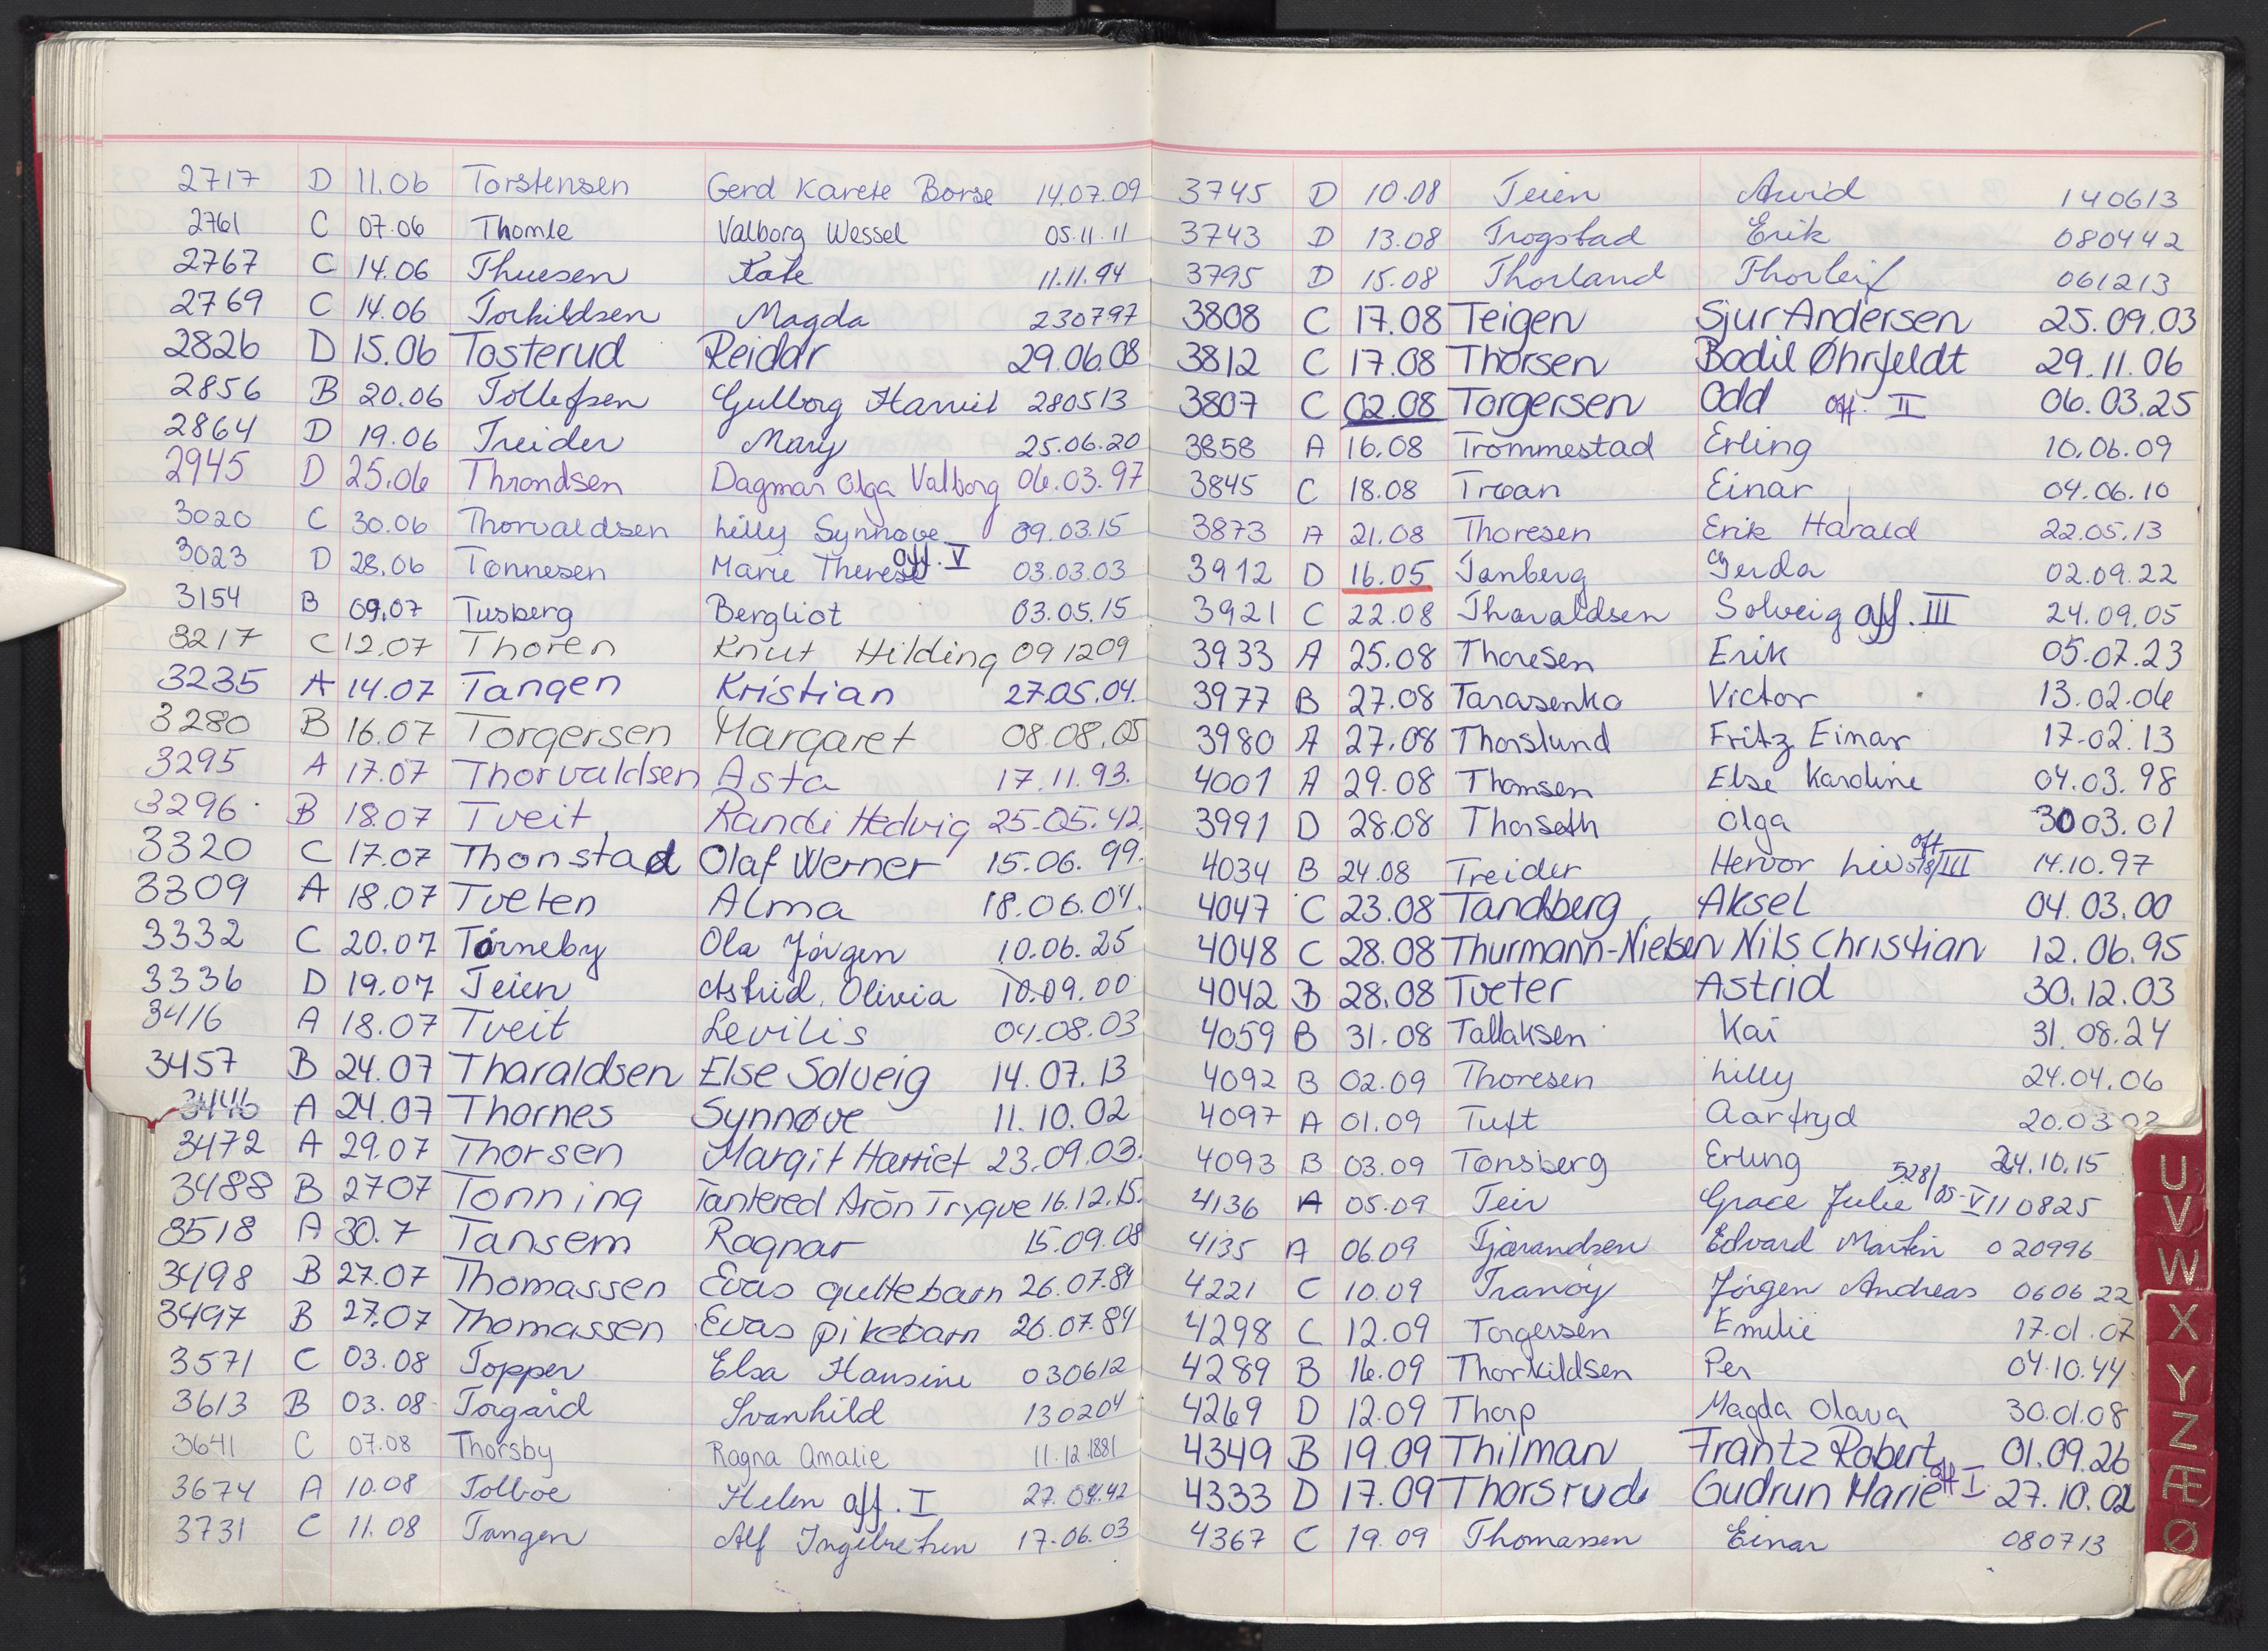 2717 D 11.06 Torstensen Gerd Karete Borse 14.07.09
2761 C 07.06 Thomle Valborg Wessel 05.11.11
2767 C 14.06 Thuesen Kate 11.11.94
2769 C 14.06 Torkildsen Magda 230797
2826 D 15.06 Tosterud Reidar 29.06.08
2856 B 20.06 Tollefsen Gulborg Harriet 280513
2864 D 19.06 Treider Mary 25.06.20
2945 D 25.06 Throndsen Dagmar Olga Valborg 06.03.97
3020 C 30.06 Thorvaldsen Lilly Synnøve 09.03.15
3023 D 28.06 Tønnesen Marie Therese aff. V 03.03.03
3154 B 09.07 Tusberg Bergliot 03.05.15
3217 C 12.07 Thoren Knut Hilding 091209
3235 A 14.07 Tangen Kristian 27.05.04.
3280 B 16.07 Torgersen Margaret 08.08.05
3295 A 17.07 Thorvaldsen Asta 17.11.93.
3296 B 18.07 Tveit Randi Hedvig 25.05.42.
3320 C 17.07 Thonstad Olaf Werner 15.06.99.
3309 A 18.07 Tveten Alma 18.06.04.
3332 C 20.07 Tørneby Ola Jörgen 10.06.25
3336 D 19.07 Teien Astrid Olivia 10.09.00
3416 A 18.07 Tveit Levilis 04.08.03
3457 B 24.07 Tharaldsen Else Solveig 14.07.13
3446 A 24.07 Thornes Synnøve 11.10.02
3472 A 29.07 Thorsen Margit Harriet 23.09.03.
3488 B 2707 Tonning Tantered Arön Trygve 16.12.15.
3518 A 30.7 Tansem Ragnar 15.09.08
3498 B 27.07 Thomassen Evas guttebarn 26.07.84
3497 B 27.07 Thomassen Evas pikebarn 26.07.84
3571 C 03.08 Topper Elsa Hansine 030612
3613 B 03.08 Torgård Svanhild 130204
3641 C 07.08 Thorsby Ragna Amalie 11.12.1881
3674 A 10.08 Tolboe Helen aff. I 27.04.42
3731 C 11.08 Tangen Alf Ingebretsen 17.06.03
3745 D 10.08 Teien Arvid 140613
3743 D 13.08 Trogstad Erik 080442
3795 D 15.08 Thorland Thorleif 061213
3808 C 17.08 Teigen Sjur Andersen 25.09.03
3812 C 17.08 Thorsen Bodil Øhrfeldt 29.11.06
3807 C 02.08 Torgersen Odd aff. II 06.03.25
3858 A 16.08 Trømmestad Erling 10.06.09
3845 C 18.08 Trøan Einar 04.06.10
3873 A 21.08 Thoresen Erik Harald 22.05.13
3912 D 16.05 Tanberg Gerda 02.09.22
3921 C 22.08 Tharaldsen Solveig aff. III 24.09.05
3933 A 25.08 Thoresen Erik 05.07.23
3977 B 27.08 Tarasenko Victor 13.02.06
3980 A 27.08 Thorslund Fritz Einar 17.02.13
4001 A 29.08 Thomsen Else Karoline 04.03.98
3991 D 28.08 Thorseth Olga 3003.01
4034 B 24.08 Treider Hervor Liv aff 5/8/III 14.10.97
4047 C 23.08 Tandberg Aksel 04.03.00
4048 C 28.08 Thurmann-Nielsen Nils Christian 12.06.95
4042 B 28.08 Tveter Astrid 30.12.03
4059 B 31.08 Tallaksen Kai 31.08.24
4092 B 02.09 Thoresen Lilly 24.04.06
4097 A 01.09 Tuft Aarfryd 20.03.02
4093 B 03.09 Tønsberg Erling 24.10.15
4136 A 05.09 Teir Grace Julie 528/85-V 110825
4135 A 06.09 Tjærandsen Edvard Martin 020996
4221 C 10.09 Tranøy Jörgen Andreas 060622
4298 C 12.09 Torgersen Emilie 17.01.07
4289 B 16.09 Thorkildsen Per 04.10.44
4269 D 12.09 Thorp Magda Olava 30.01.08
4349 B 19.09 Thilman Frantz Robert 01.09.26
4333 D 17.09 Thorsrud Gudrun Marie aff I 27.10.02
4367 C 19.09 Thomassen Einar 080713
U
V
W
X
Y
Z
Æ
Ø